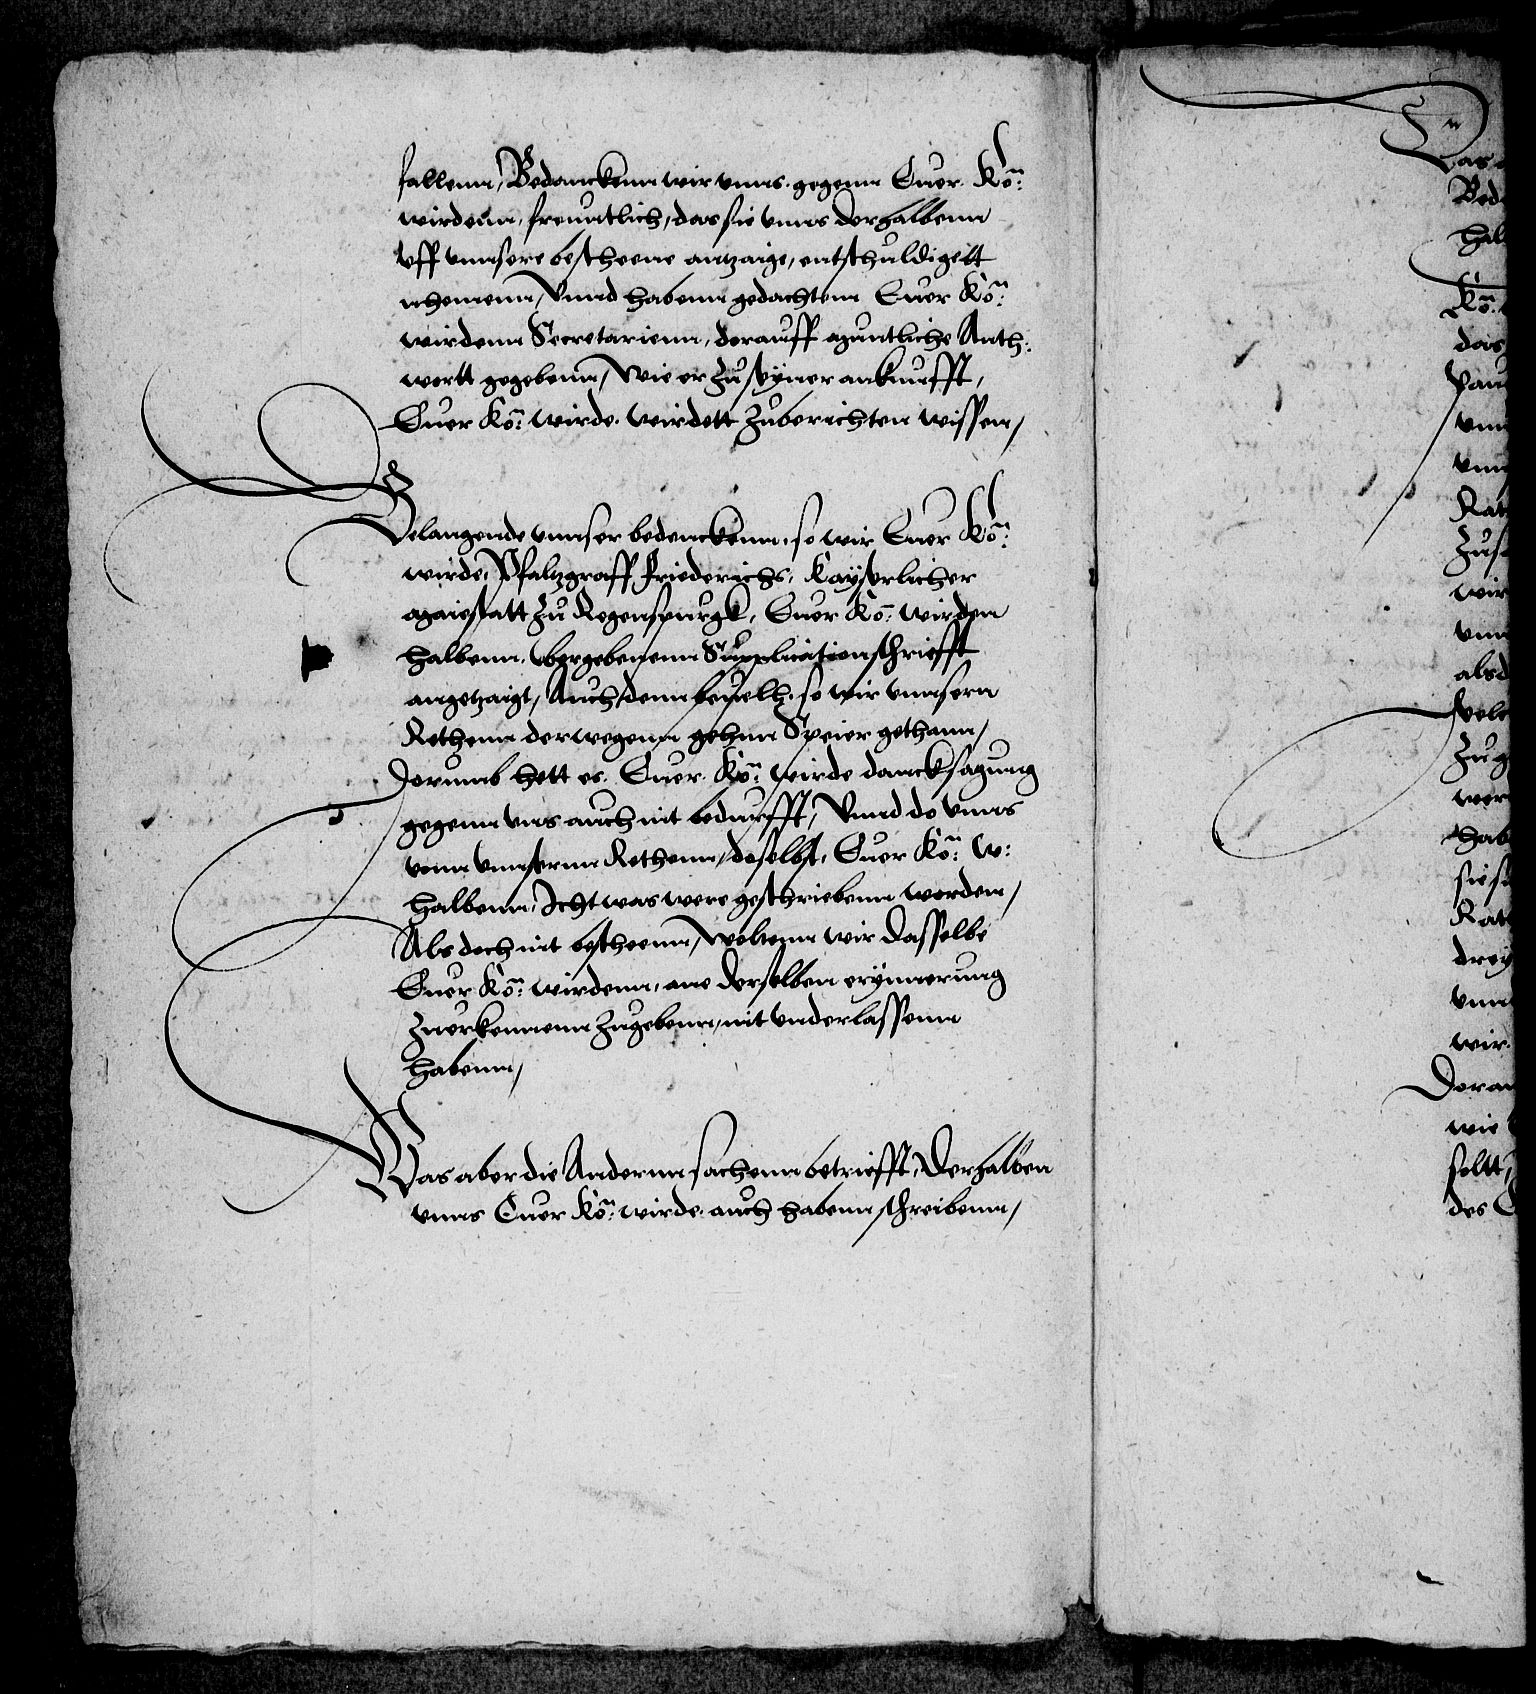 fallenn, Bedanckenn wir vnns gegenn Euer Kön:
wirdenn, freuntlich, das sie vnns derhalbenn
vff vnnsere bescheene antzaige, entschuldigett
nhemenn, Vnnd habenn gedachtenn Euer Kön:
wirdenn Secretarienn, darauff muntliche Anth:
wortt gegebenn, Wie er zu seyner ankunfft,
Euer Kön: wirde. wirdett zuberichten wissen,
Belangende vnnser bedenckenn, so wir Euer Kön:
wirde, Pfaltzgraff Friederichs, Kayserlicher
Maiestatt zu Regenspurgk, Euer Kön: wirden
halbenn, vbergebenenn Supplication schriefft
angetzaigt, Auch denn beuelh, so wir vnnsern
Rethenn derwegenn gehnn Speier gethann,
Dorumb hett es. Euer Kön: wirde dancksagung
gegenn vns auch nit bedurfft, Vnnd do vnns
vonn vnnsernn Rethenn, doselbst, Euer Kön: W:
halbenn, Icht was were geschriebenn worden,
Als doch nit bescheenn, Woltenn wir dasselbe
Euer Kön: wirdenn, ane derselben erynnerung
zuerkennenn zugebenn, nit vnderlassenn
habenn,
Was aber die Andernn sachenn betriefft, Derhalben
vnns Euer Kön: wirde auch habenn schreibenn,
Kön:
das
vnn
wir
vnn
zu g
drey
vnn
wir
wie
soltt,
des